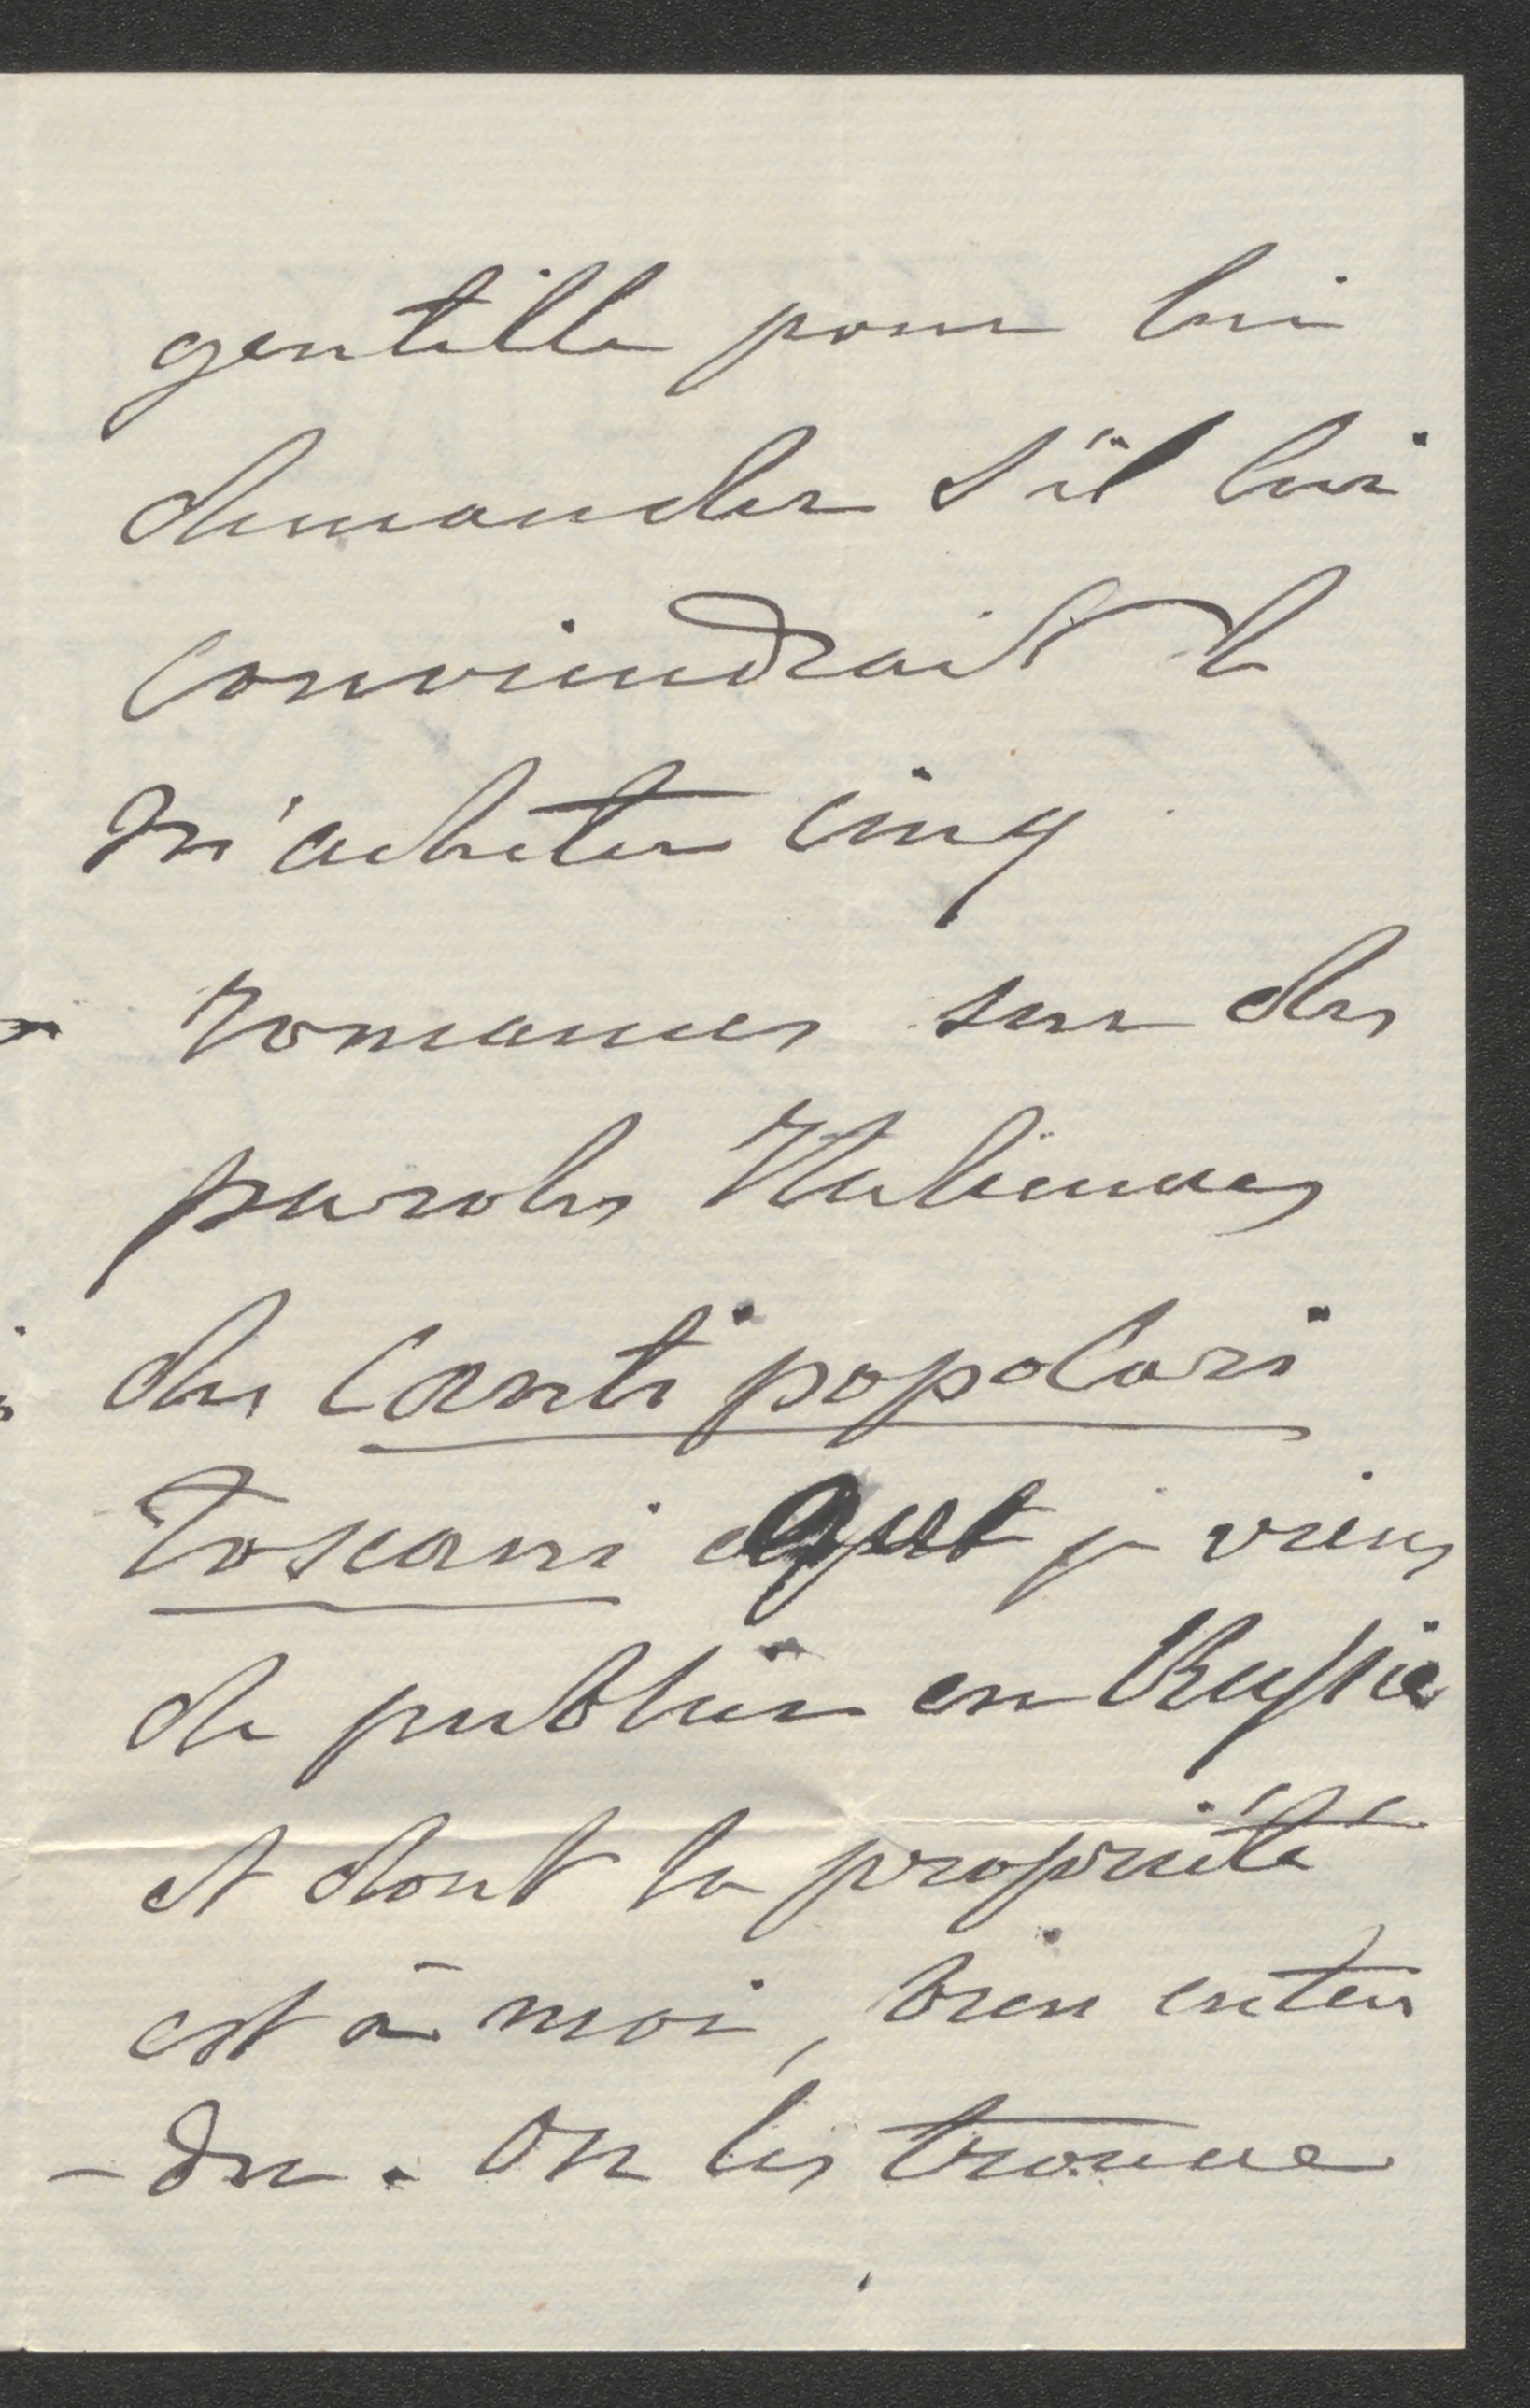 gentille pour lui
demander s'il lui
conviendrait de
m'acheter cinq
romances sur des
paroles Italiennes
des Canti popolari
Toscani que je viens
de publier en Russie
et dont la propriété
est à moi, bien enten
-du. On les trouve